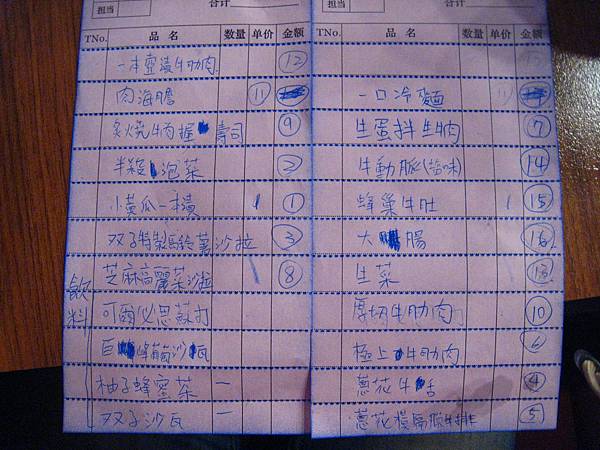 担当
合计
TNo. 品名 数量 单价 金额
一本壺漬牛肋肉 12
肉海膽 11
炙燒牛肉握壽司 9
半殺泡菜 2
小黃瓜一本漬 1 1
双子特製馬鈴薯沙拉 3
芝麻高麗菜沙拉 8
飲料
可爾必思蘇打
巨峰葡萄沙瓦
柚子蜂蜜茶 一
双子沙瓦 一
担当
合计
TNo. 品名 数量 单价 金额
一口冷麵
生蛋拌生牛肉 7
牛動脈(鹽味) 14
蜂巢牛肚 1 15
大腸 16
生菜
厚切牛肋肉 10
極上牛肋肉 6
蔥花牛舌 4
蔥花橫隔膜牛排 5